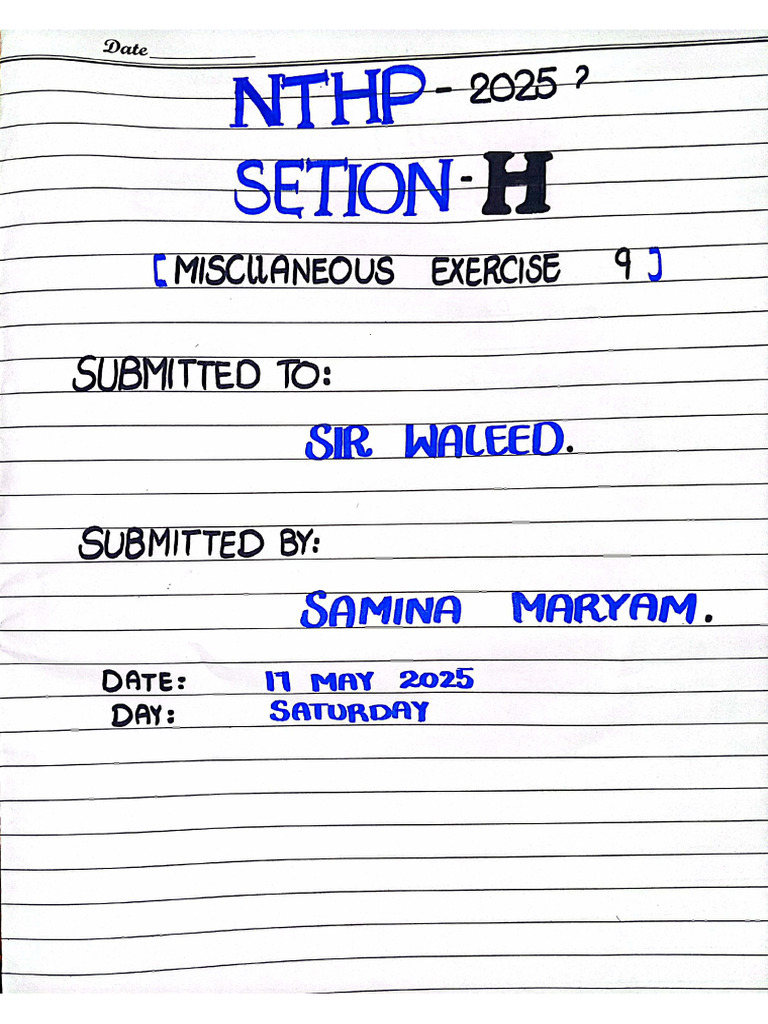 Date
NTHP - 2025 ?
SETION - H
[MISCLLANEOUS EXERCISE 9]
SUBMITTED TO:
SIR WALEED.
SUBMITTED BY:
SAMINA MARYAM.
DATE: 17 MAY 2025
DAY: SATURDAY